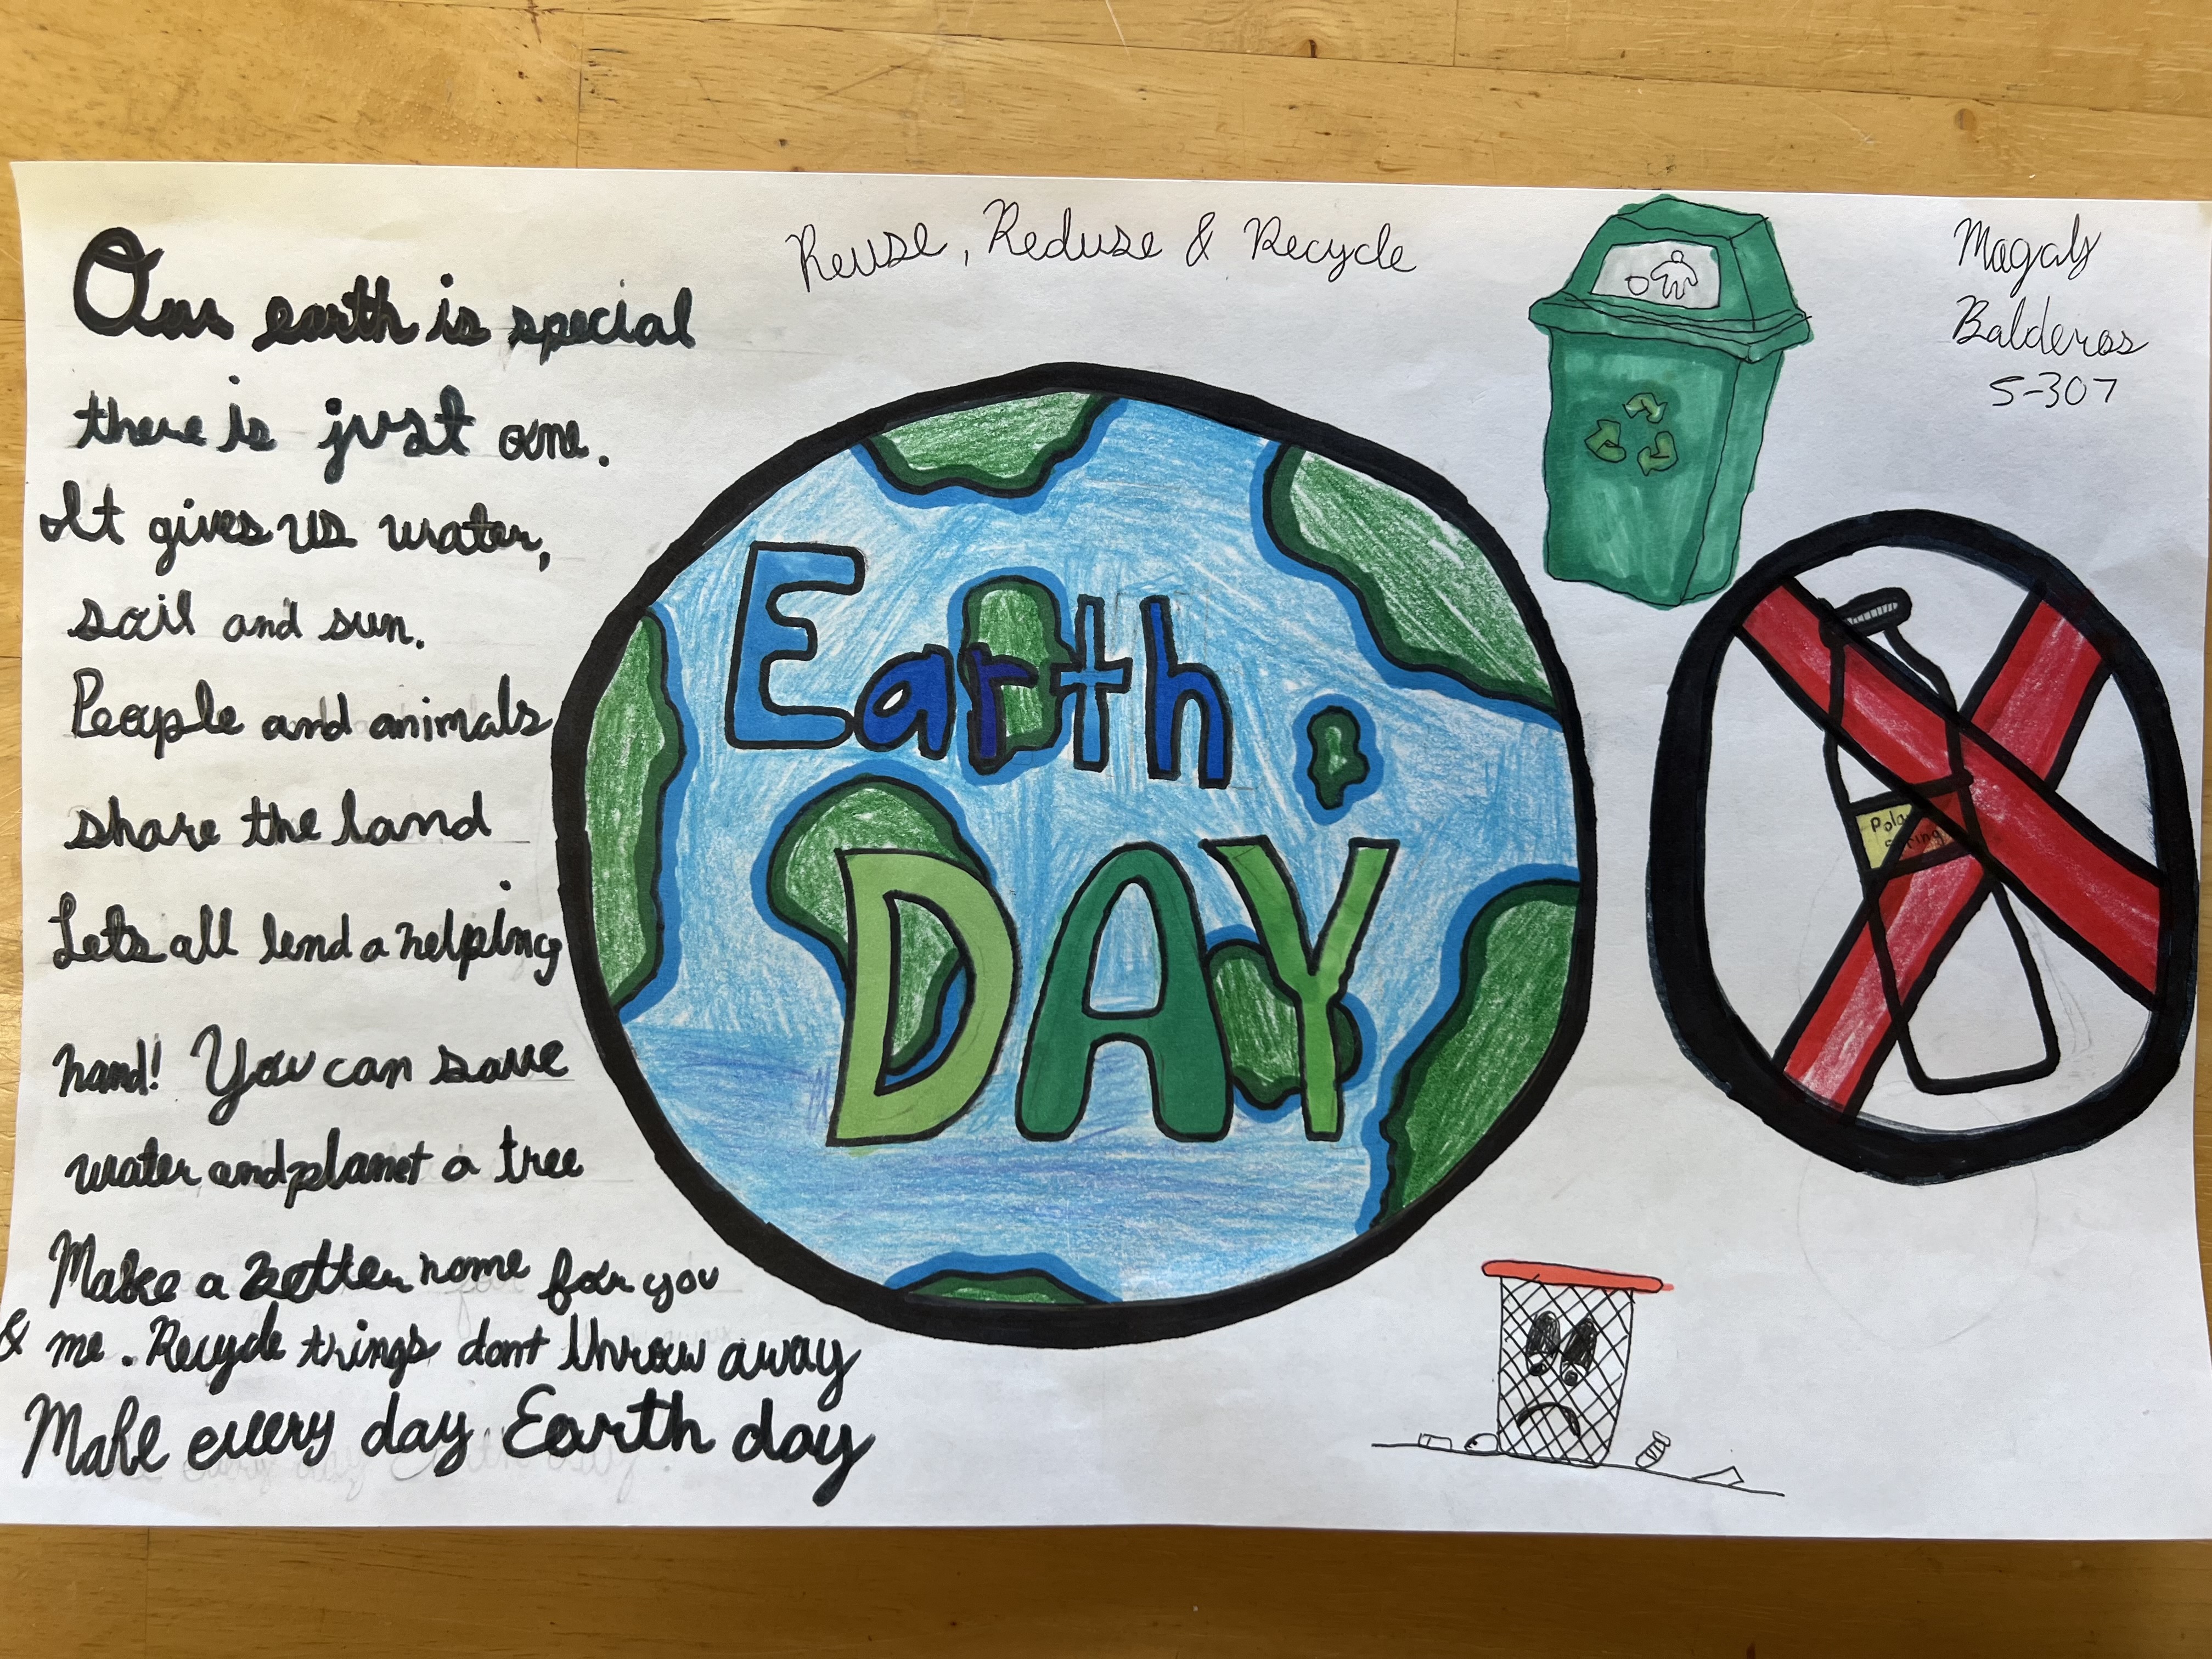 Our earth is special
there is just one.
It gives us water,
soil and sun.
People and animals
share the land
Lets all lend a helping
hand! You can save
water and planet a tree
Make a better home for you
& me. Recycle things dont throw away
Make every day Earth day
Reuse, Reduse & Recycle
Earth
DAY
Magaly
Balderas
5-307
Pola
spring